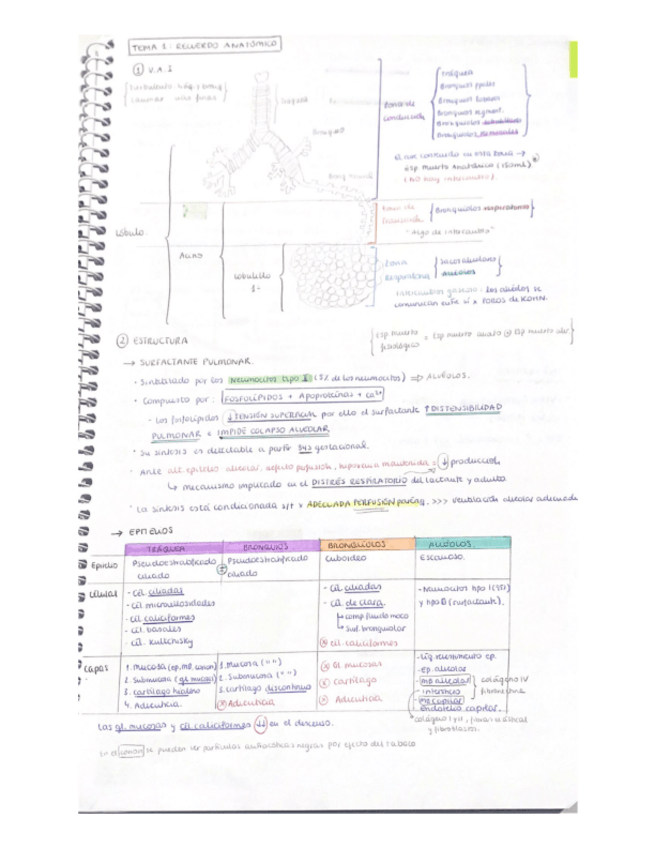 TEMA 1: RECUERDO ANATÓMICO
① V.A.I
Tráquea
Bronquios
Zona de conducción
Tráquea
Bronquios
Bronquios
Bronquios segment.
Bronquiolos
Bronquiolos terminales
El aire contenido en esta zona →
esp muerto anatómico (150ml)
(NO hay intercambio).
Zona de transición
Bronquiolos respiratorios
"Algo de intercambio"
Lóbulo
Acino
Lobulillo
3-
Zona Respiratoria
Sacos alveolares
Alveolos
Intercambio gaseoso: los alvéolos se
comunican entre sí x POROS DE KOHN.
Esp muerto fisiológico = Esp muerto anato ⊕ Esp muerto alv.
② ESTRUCTURA
→ SURFACTANTE PULMONAR.
· Sintetizado por los Neumocitos tipo II (5% de los neumocitos) ⇒ ALVÉOLOS.
· Compuesto por: FOSFOLÍPIDOS + Apoproteínas + Ca²⁺
· Los fosfolípidos ↓TENSIÓN SUPERFICIAL por ello el surfactante ↑DISTENSIBILIDAD
PULMONAR e IMPIDE COLAPSO ALVEOLAR
· Su síntesis es detectable a partir 34s gestacional.
· Ante alt epitelio alveolar, defecto perfusión, hiperoxia mantenida = ↓ producción
↳ mecanismo implicado en el DISTRÉS RESPIRATORIO del lactante y adulto.
· La síntesis está condicionada s/t x ADECUADA PERFUSIÓN >>> ventilación alveolar adecuada
→ EPITELIOS
TRÁQUEA BRONQUIOS BRONQUIOLOS ALVEOLOS.
Epitelio Pseudoestratificado ciliado = Pseudoestratificado ciliado Cuboideo Escamoso.
Células
- cél. ciliadas
- cél. microvellosidades
- cél. caliciformes
- cél. basales
- cél. Kultchisky
- cél. ciliadas
- cél. de clara.
↳ comp fluido moco
↳ surf. bronquiolar
cél. caliciformes
- Neumocitos tipo I (95%)
y tipo II (surfactante).
Capas
1. mucosa (ep. mb. conon)
2. submucosa (gl mucosa)
3. cartílago hialino
4. Adventicia.
1. mucosa (" ")
2. submucosa (" ")
3. cartílago discontinuo
Adventicia
Gl mucosas
cartílago
Adventicia
- Líq recubrimiento ep.
- ep. alveolar
- mb alveolar
- intersticio
- mb capilar
- endotelio capilar.
colágeno IV
fibronectina
colágeno I y III, fibras elásticas
y fibroblastos.
Las gl. mucosas y cél. caliciformes ↓↓ en el descenso.
se pueden ver partículas antracóticas negras por efecto del tabaco